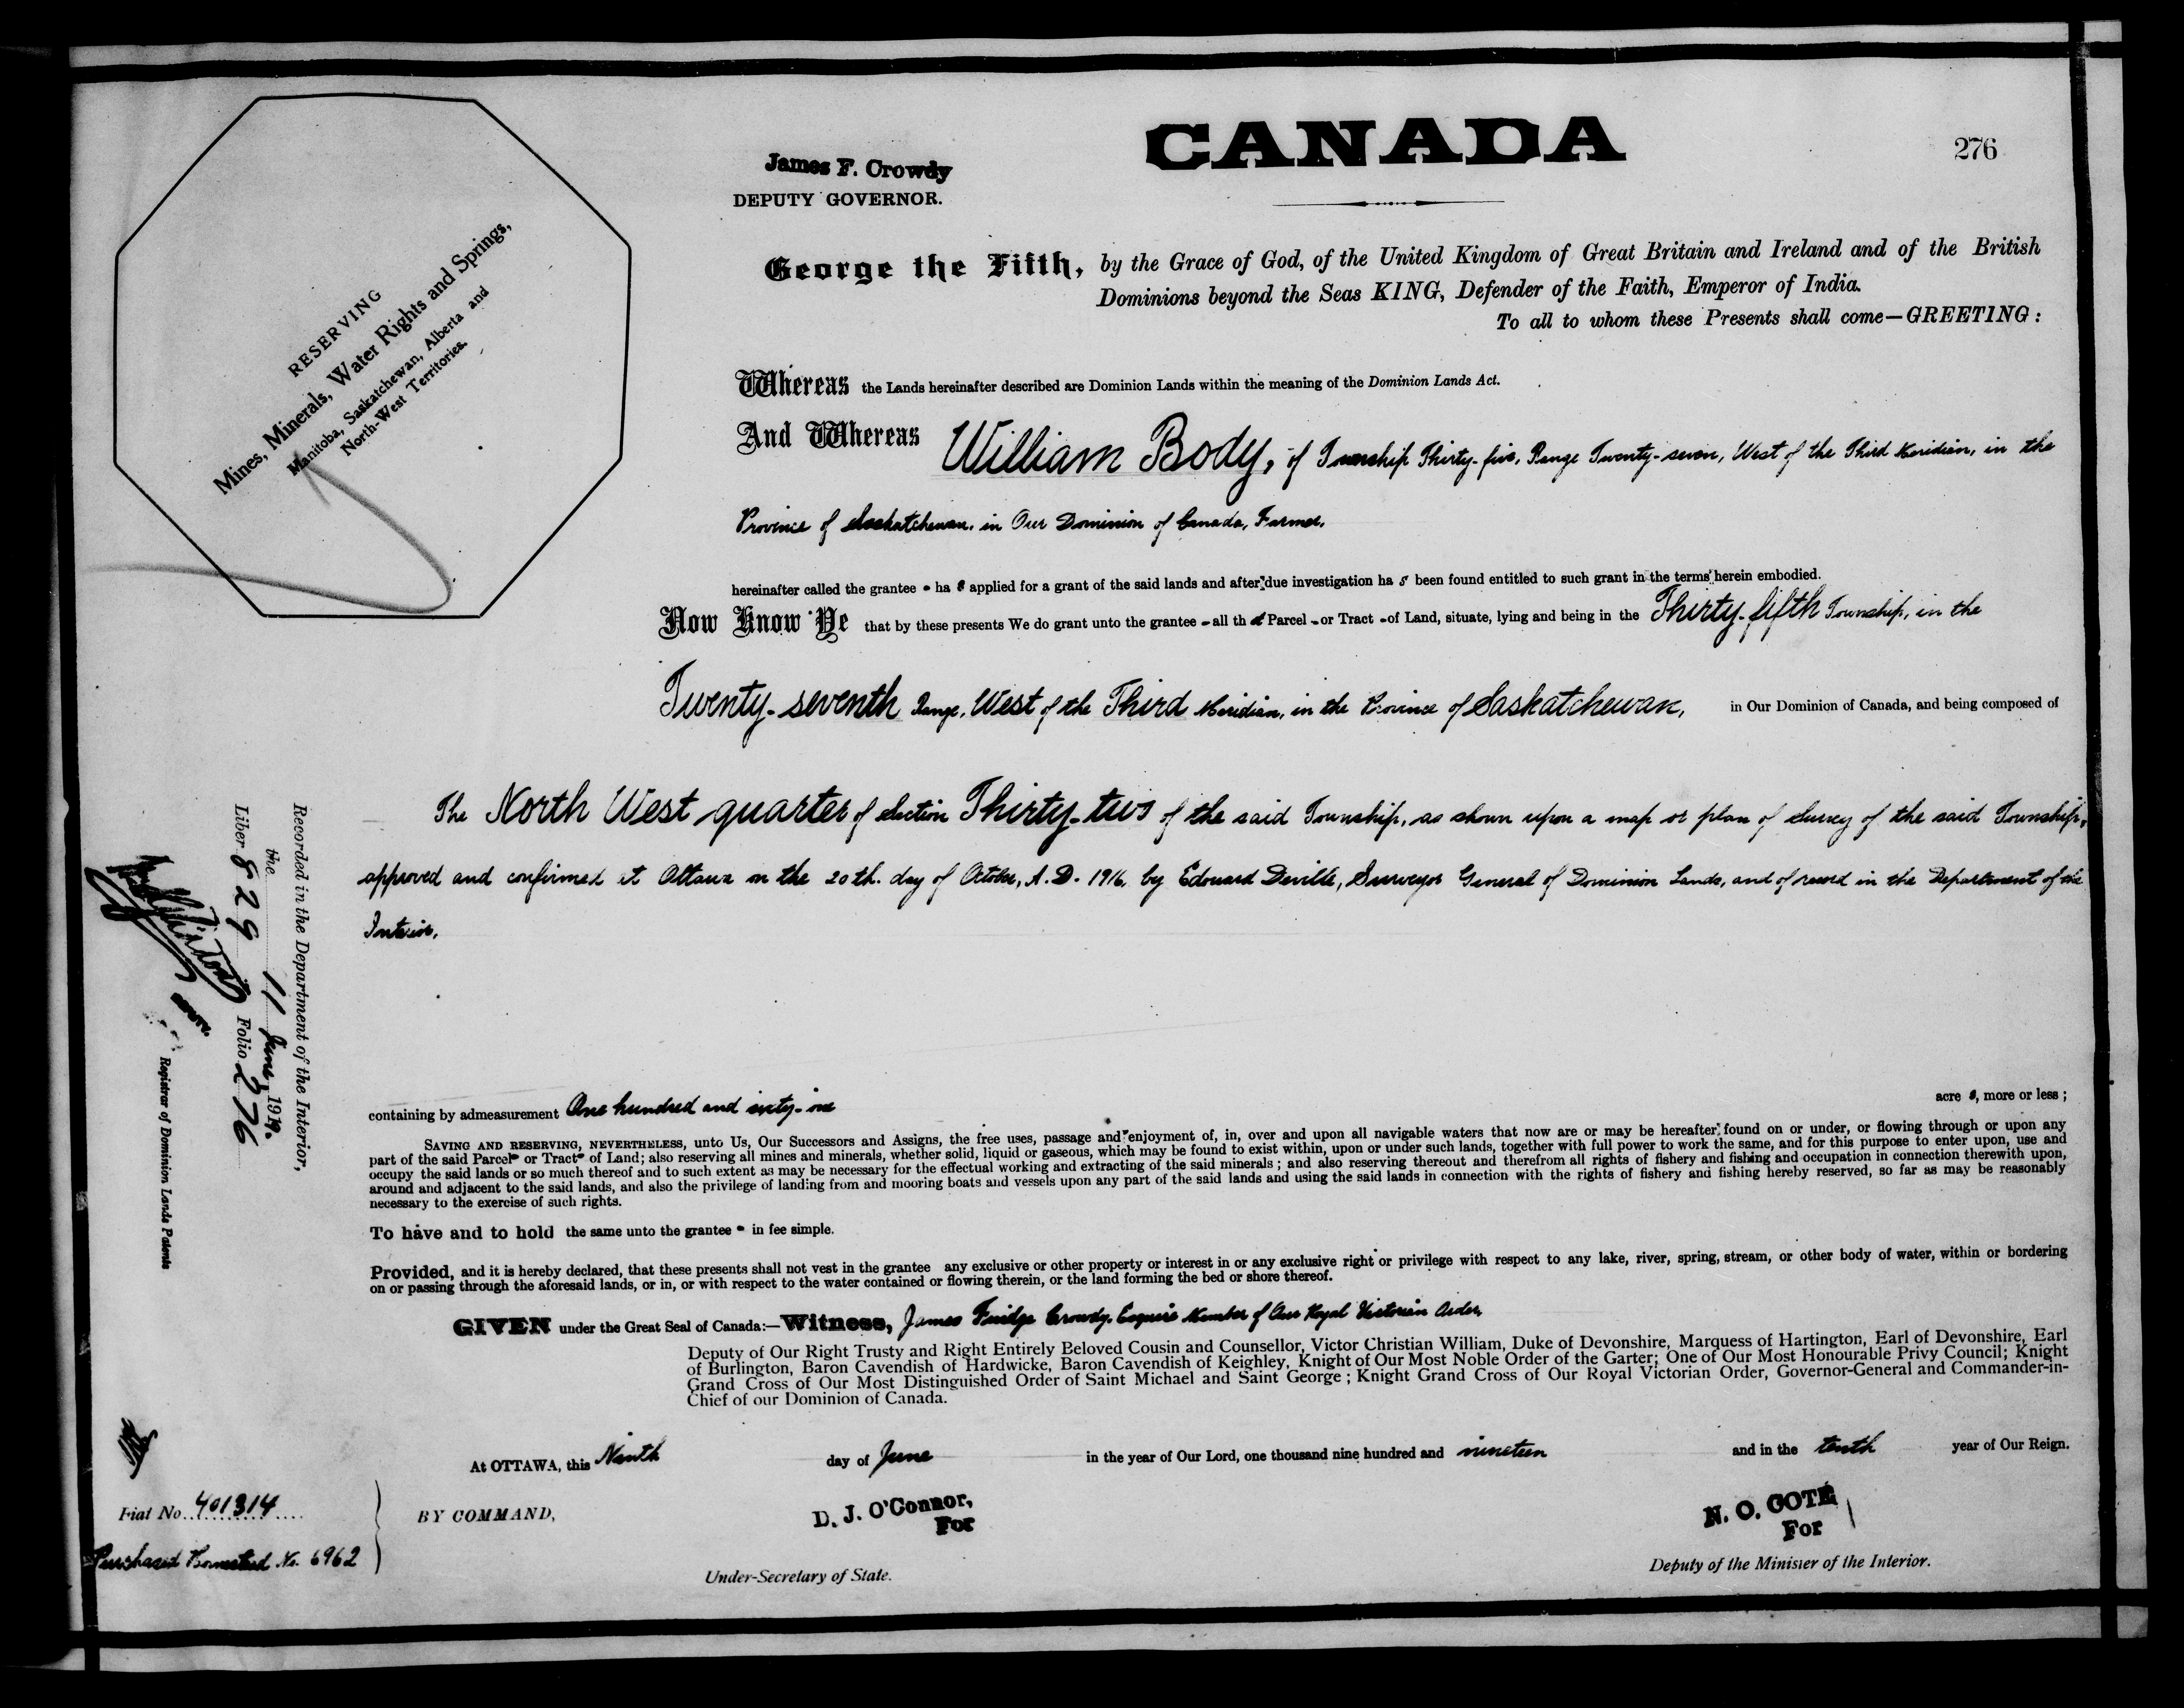 CANADA
276
James F. Crowdy
DEPUTY GOVERNOR.
RESERVING
Mines, Minerals, Water Rights and Springs,
Manitoba, Saskatchewan, Alberta and
North-West Territories.
George the Fifth, by the Grace of God, of the United Kingdom of Great Britain and Ireland and of the British
Dominions beyond the Seas KING, Defender of the Faith, Emperor of India.
To all to whom these Presents shall come—GREETING:
Whereas the Lands hereinafter described are Dominion Lands within the meaning of the Dominion Lands Act.
And Whereas William Body, of Township Thirty-five, Range Twenty-seven, West of the Third Meridian, in the
Province of Saskatchewan, in Our Dominion of Canada, Farmer,
hereinafter called the grantee - ha s applied for a grant of the said lands and after due investigation ha s been found entitled to such grant in the terms herein embodied.
Now Know Ye that by these presents We do grant unto the grantee - all th at Parcel - or Tract - of Land, situate, lying and being in the Thirty-fifth Township, in the
Twenty-seventh Range, West of the Third Meridian, in the Province of Saskatchewan, in Our Dominion of Canada, and being composed of
The North West quarter of Section Thirty-two of the said Township, as shown upon a map or plan of Survey of the said Township,
approved and confirmed at Ottawa on the 20th. day of October, A.D. 1916, by Edouard Deville, Surveyor General of Dominion Lands, and of record in the Department of the
Interior,
containing by admeasurement One hundred and sixty-one acre s, more or less;
SAVING AND RESERVING, NEVERTHELESS, unto Us, Our Successors and Assigns, the free uses, passage and enjoyment of, in, over and upon all navigable waters that now are or may be hereafter found on or under, or flowing through or upon any
part of the said Parcel- or Tract- of Land; also reserving all mines and minerals, whether solid, liquid or gaseous, which may be found to exist within, upon or under such lands, together with full power to work the same, and for this purpose to enter upon, use and
occupy the said lands or so much thereof and to such extent as may be necessary for the effectual working and extracting of the said minerals; and also reserving thereout and therefrom all rights of fishery and fishing and occupation in connection therewith upon,
around and adjacent to the said lands, and also the privilege of landing from and mooring boats and vessels upon any part of the said lands and using the said lands in connection with the rights of fishery and fishing hereby reserved, so far as may be reasonably
necessary to the exercise of such rights.
To have and to hold the same unto the grantee - in fee simple.
Provided, and it is hereby declared, that these presents shall not vest in the grantee any exclusive or other property or interest in or any exclusive right or privilege with respect to any lake, river, spring, stream, or other body of water, within or bordering
on or passing through the aforesaid lands, or in, or with respect to the water contained or flowing therein, or the land forming the bed or shore thereof.
GIVEN under the Great Seal of Canada:—Witness, James Fuidge Crowdy, Esquire Member of Our Royal Victorian Order,
Deputy of Our Right Trusty and Right Entirely Beloved Cousin and Counsellor, Victor Christian William, Duke of Devonshire, Marquess of Hartington, Earl of Devonshire, Earl
of Burlington, Baron Cavendish of Hardwicke, Baron Cavendish of Keighley, Knight of Our Most Noble Order of the Garter; One of Our Most Honourable Privy Council; Knight
Grand Cross of Our Most Distinguished Order of Saint Michael and Saint George; Knight Grand Cross of Our Royal Victorian Order, Governor-General and Commander-in-
Chief of our Dominion of Canada.
At OTTAWA, this Ninth day of June in the year of Our Lord, one thousand nine hundred and nineteen and in the tenth year of Our Reign.
BY COMMAND,
D. J. O'Connor,
For
Under-Secretary of State.
N. O. COTE
For
Deputy of the Minister of the Interior.
Fiat No. 401314
Purchased Homestead No. 6962
Recorded in the Department of the Interior,
the 11 June, 1919.
Liber 829 Folio 276
Registrar of Dominion Lands Patents